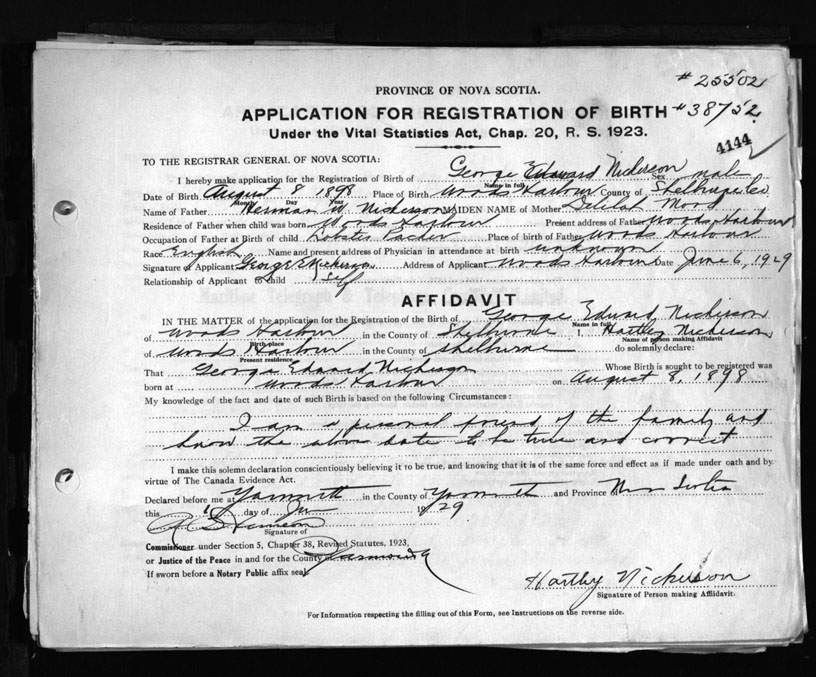 #25502
PROVINCE OF NOVA SCOTIA.
APPLICATION FOR REGISTRATION OF BIRTH #38752
Under the Vital Statistics Act, Chap. 20, R. S. 1923.
4144
TO THE REGISTRAR GENERAL OF NOVA SCOTIA:
I hereby make application for the Registration of Birth of George Edward Nickerson Sex male
Name in full
Date of Birth August 8 1898 Place of Birth Woods Harbour County of Shelburne Co
Month Day Year
Name of Father Herman W. Nickerson MAIDEN NAME of Mother Delilah Mood
Residence of Father when child was born Woods Harbour Present address of Father Woods Harbour
Occupation of Father at Birth of child Lobster Packer Place of birth of Father Woods Harbour
Race English Name and present address of Physician in attendance at birth unknown
Signature of Applicant George E Nickerson Address of Applicant Woods Harbour Date June 6, 1929
Relationship of Applicant to Child Self
AFFIDAVIT
IN THE MATTER of the application for the Registration of the Birth of George Edward Nickerson
Name in full
of Woods Harbour in the County of Shelburne I, Hartley Nickerson
Birth-place Name of person making Affidavit
of Woods Harbour in the County of Shelburne do solemnly declare:
Present residence
That George Edward Nickerson Whose Birth is sought to be registered was
born at Woods Harbour on August 8, 1898
My knowledge of the fact and date of such Birth is based on the following Circumstances:
I am a personal friend of the family and
know the above date to be true and correct
I make this solemn declaration conscientiously believing it to be true, and knowing that it is of the same force and effect as if made under oath and by
virtue of The Canada Evidence Act.
Declared before me at Yarmouth in the County of Yarmouth and Province of Nova Scotia
this day of 1929
Signature of
Commissioner under Section 5, Chapter 38, Revised Statutes, 1923,
or Justice of the Peace in and for the County of Yarmouth
If sworn before a Notary Public affix seal.
Hartley Nickerson
Signature of Person making Affidavit.
For Information respecting the filling out of this Form, see Instructions on the reverse side.